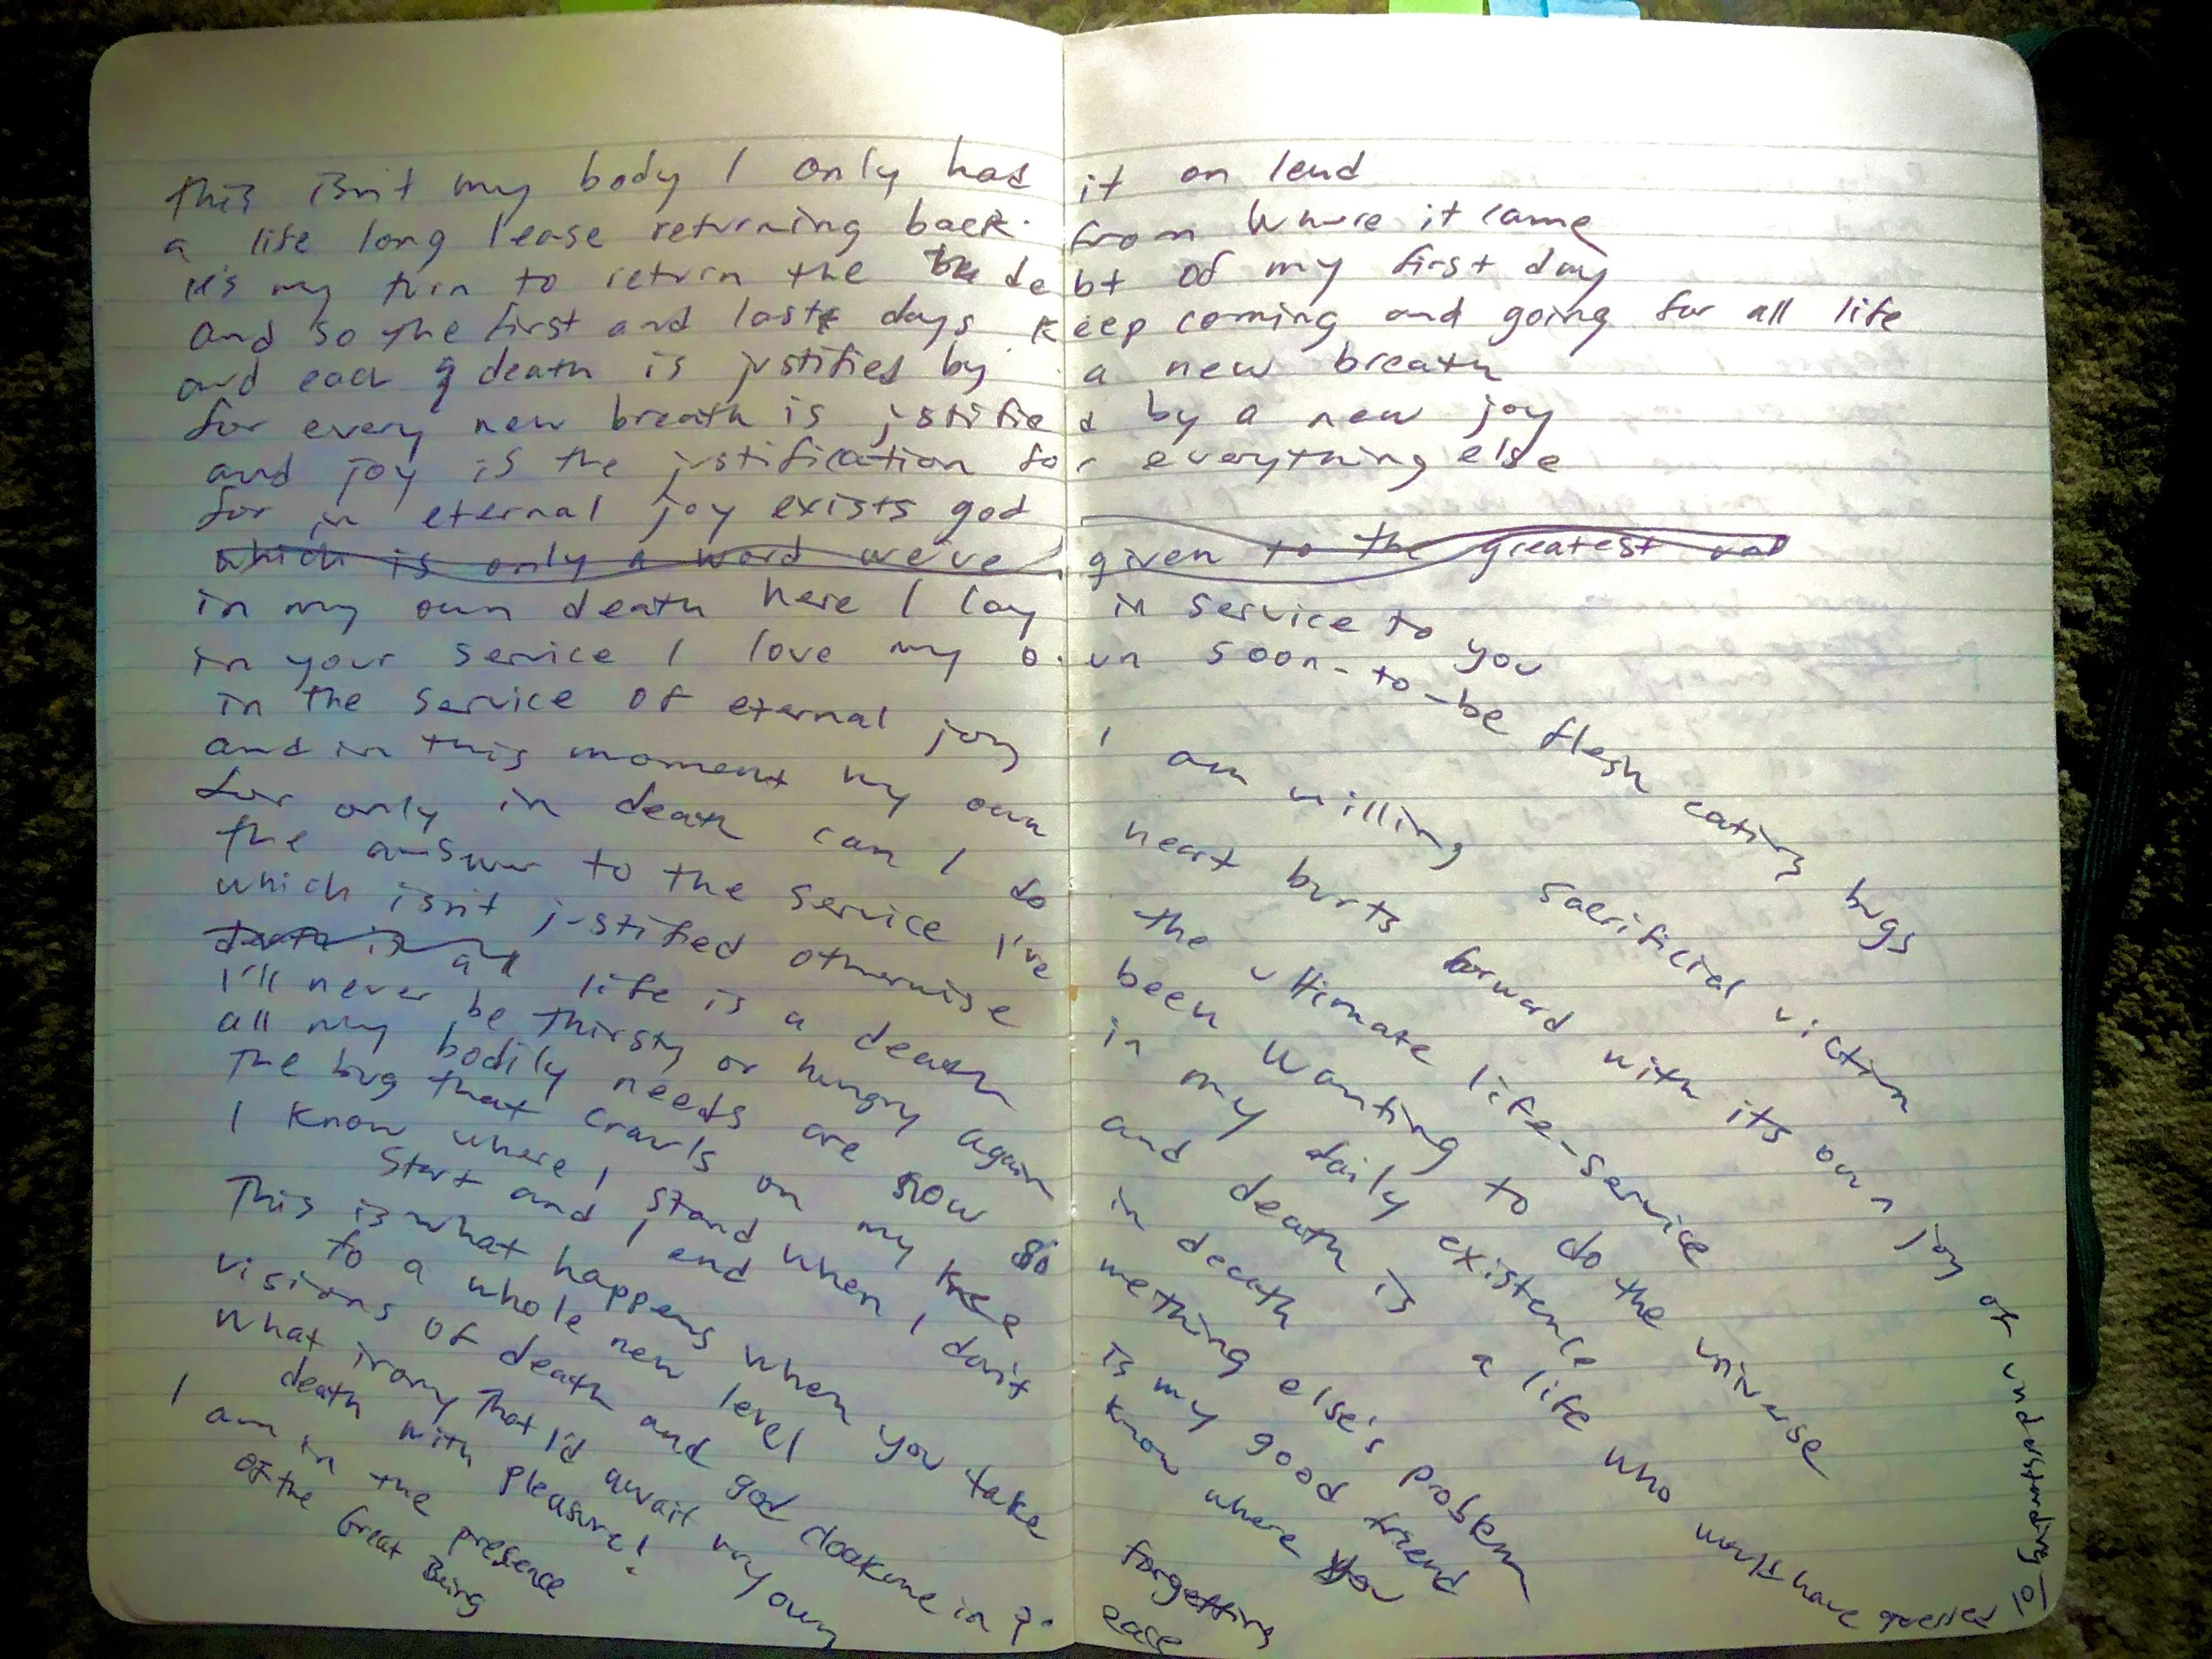 This isn't my body I only had it on lend
a life long lease returning back from where it came
it's my turn to return the debt of my first day
And so the first and last days keep coming and going for all life
and each death is justified by a new breath
for every new breath is justified by a new joy
and joy is the justification for everything else
for in eternal joy exists god
which is only a word we've given to the greatest
in my own death here I lay in service to you
in your service I love my own soon-to-be flesh eating bugs
in the service of eternal joy I am willing sacrificial victim
and in this moment my own heart burts forward with its own joy of understanding
for only in death can I do the ultimate life-service
the answer to the service I've been wanting to do the universe
which isn't justified otherwise in my daily existence
death is all life is a death and death is a life who would have guessed lol
I'll never be thirsty or hungry again in death
all my bodily needs are now something else's problem
The bug that crawls on my knee is my good friend
I know where I stand when I don't know where you
start and I end
This is what happens when you take forgetting
to a whole new level
visions of death and god cloak me in peace
What irony that I'd await my own
death with pleasure!
I am in the presence
of the Great Being